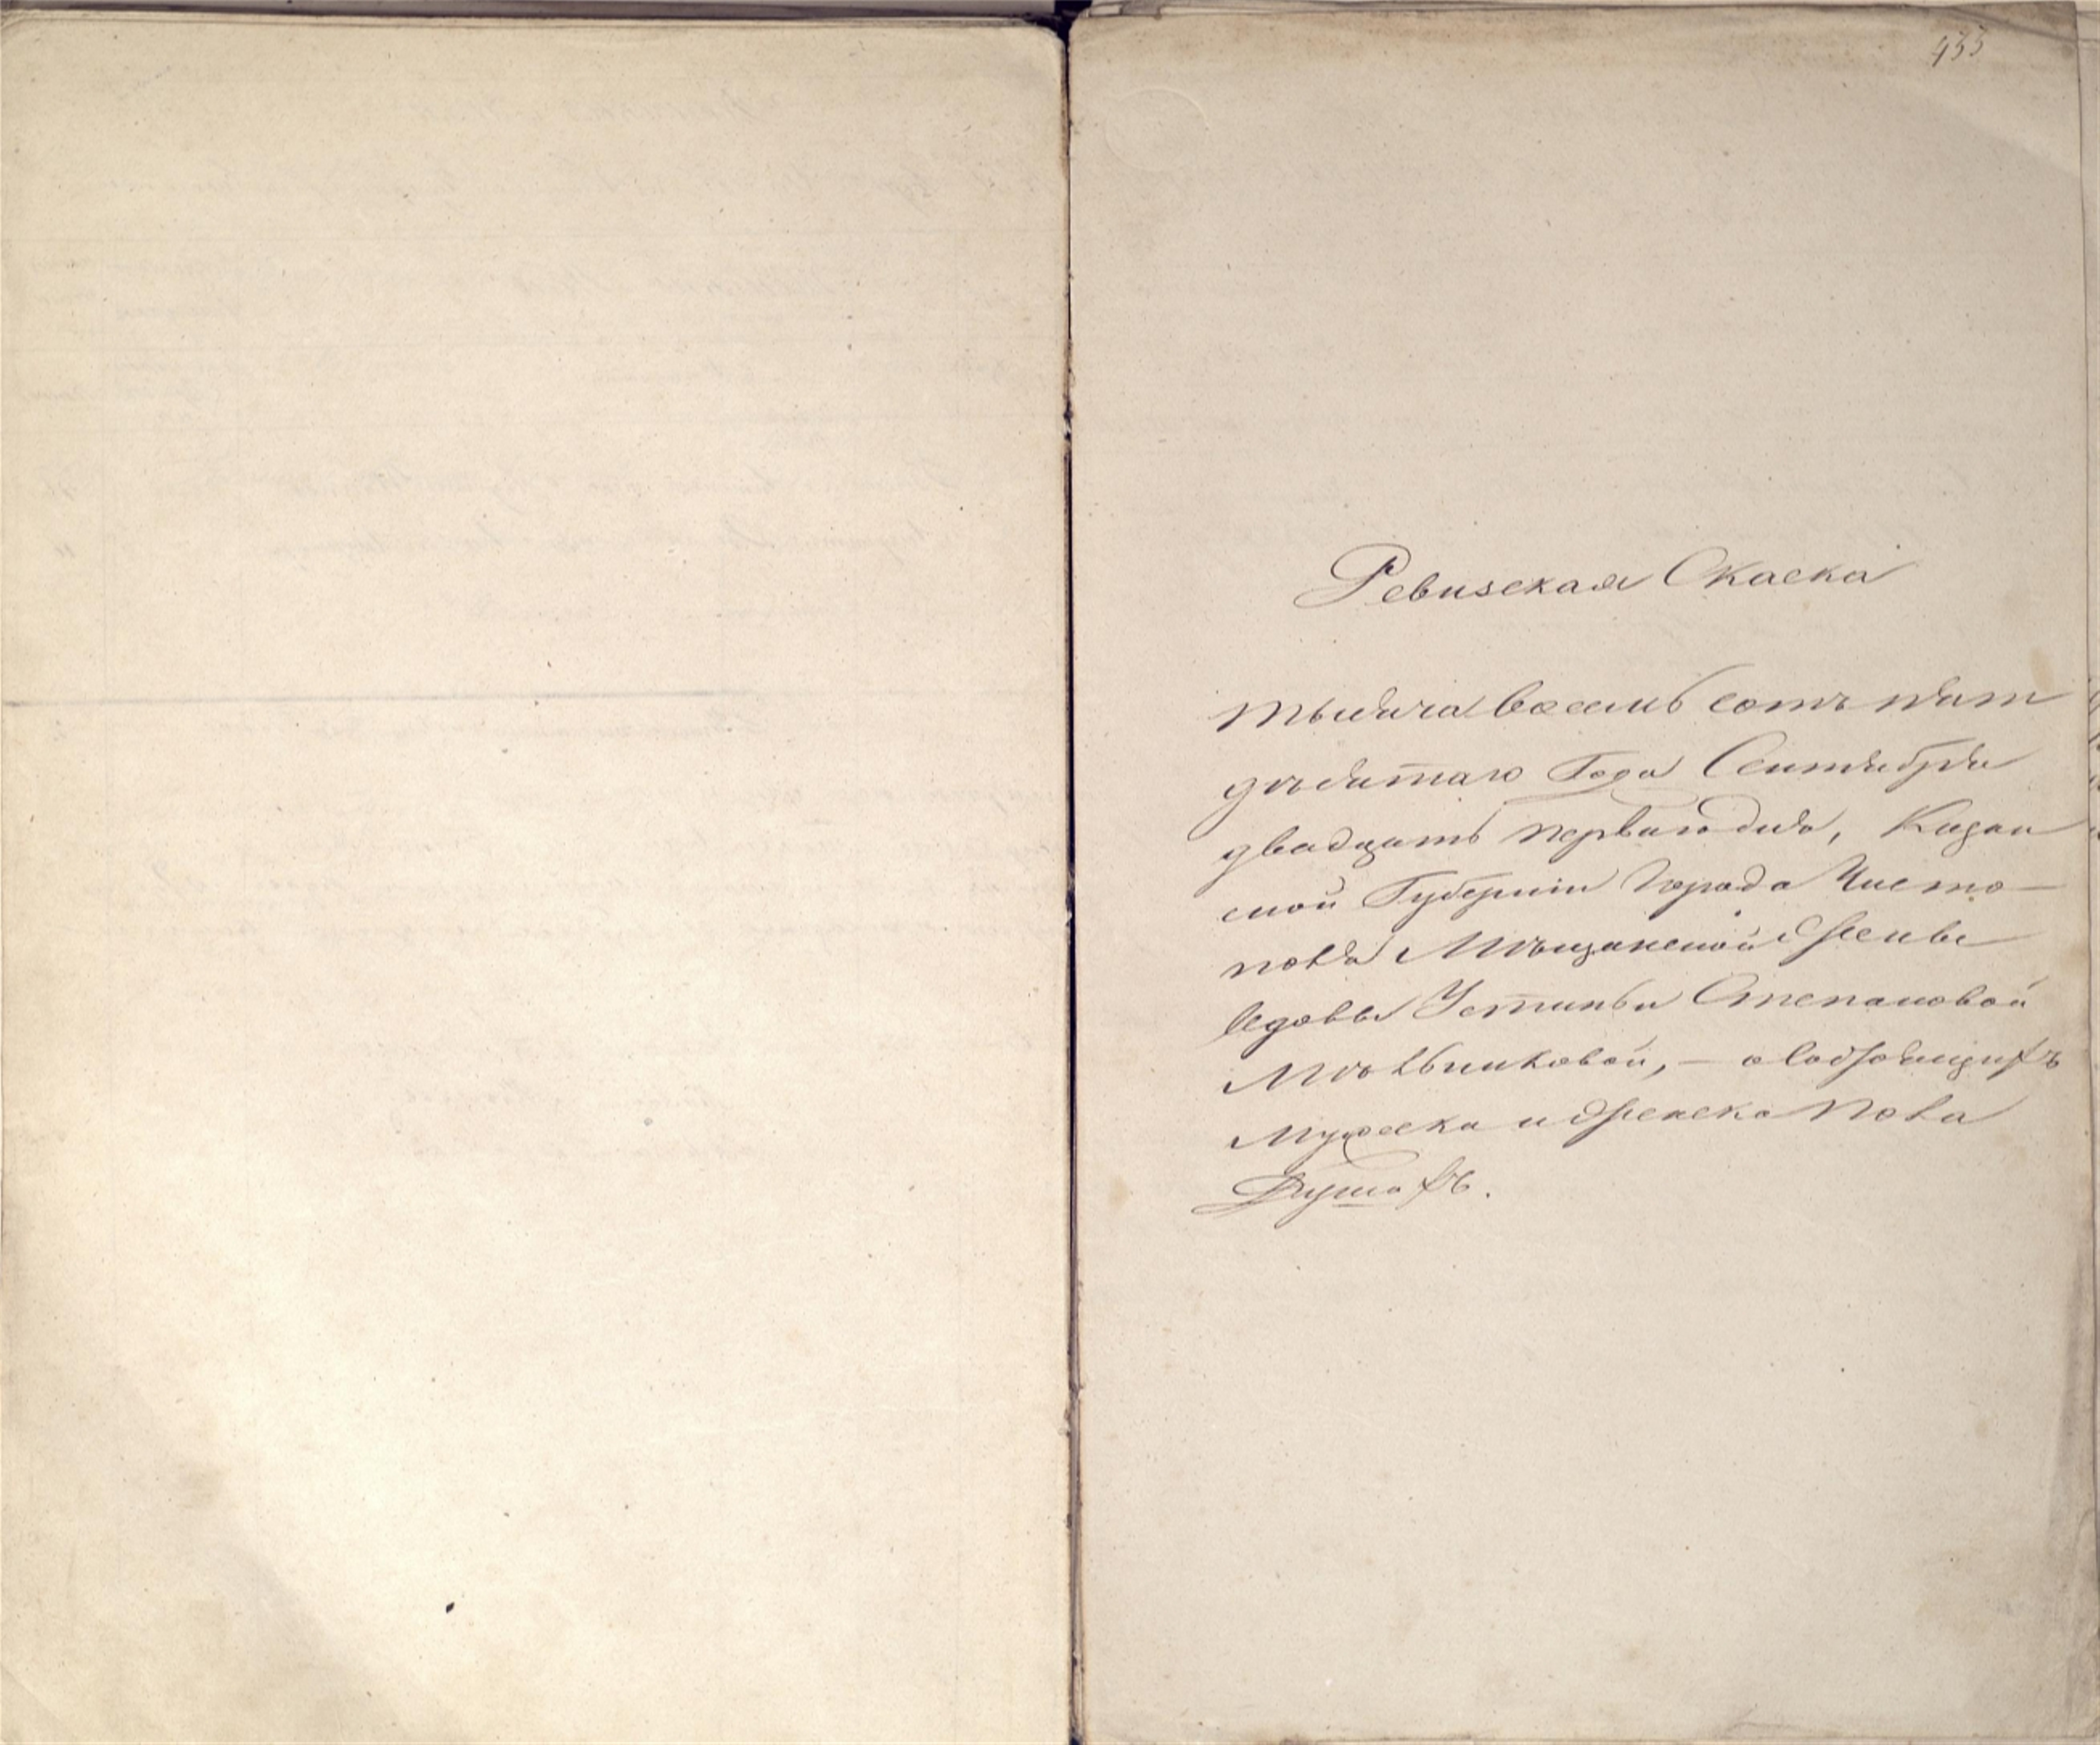 433
Ревизская Скаска
тысяча восемь сотъ пят
дѣсятаго Года Сентября
двадцать перваго дня, Казан
ской Губернiи Города Чисто-
поля Мѣщанской Жены
вдовы Устиньи Степановой
Мѣльниковой, - о состоящихъ
Мужеска и Женска пола
Душахъ.